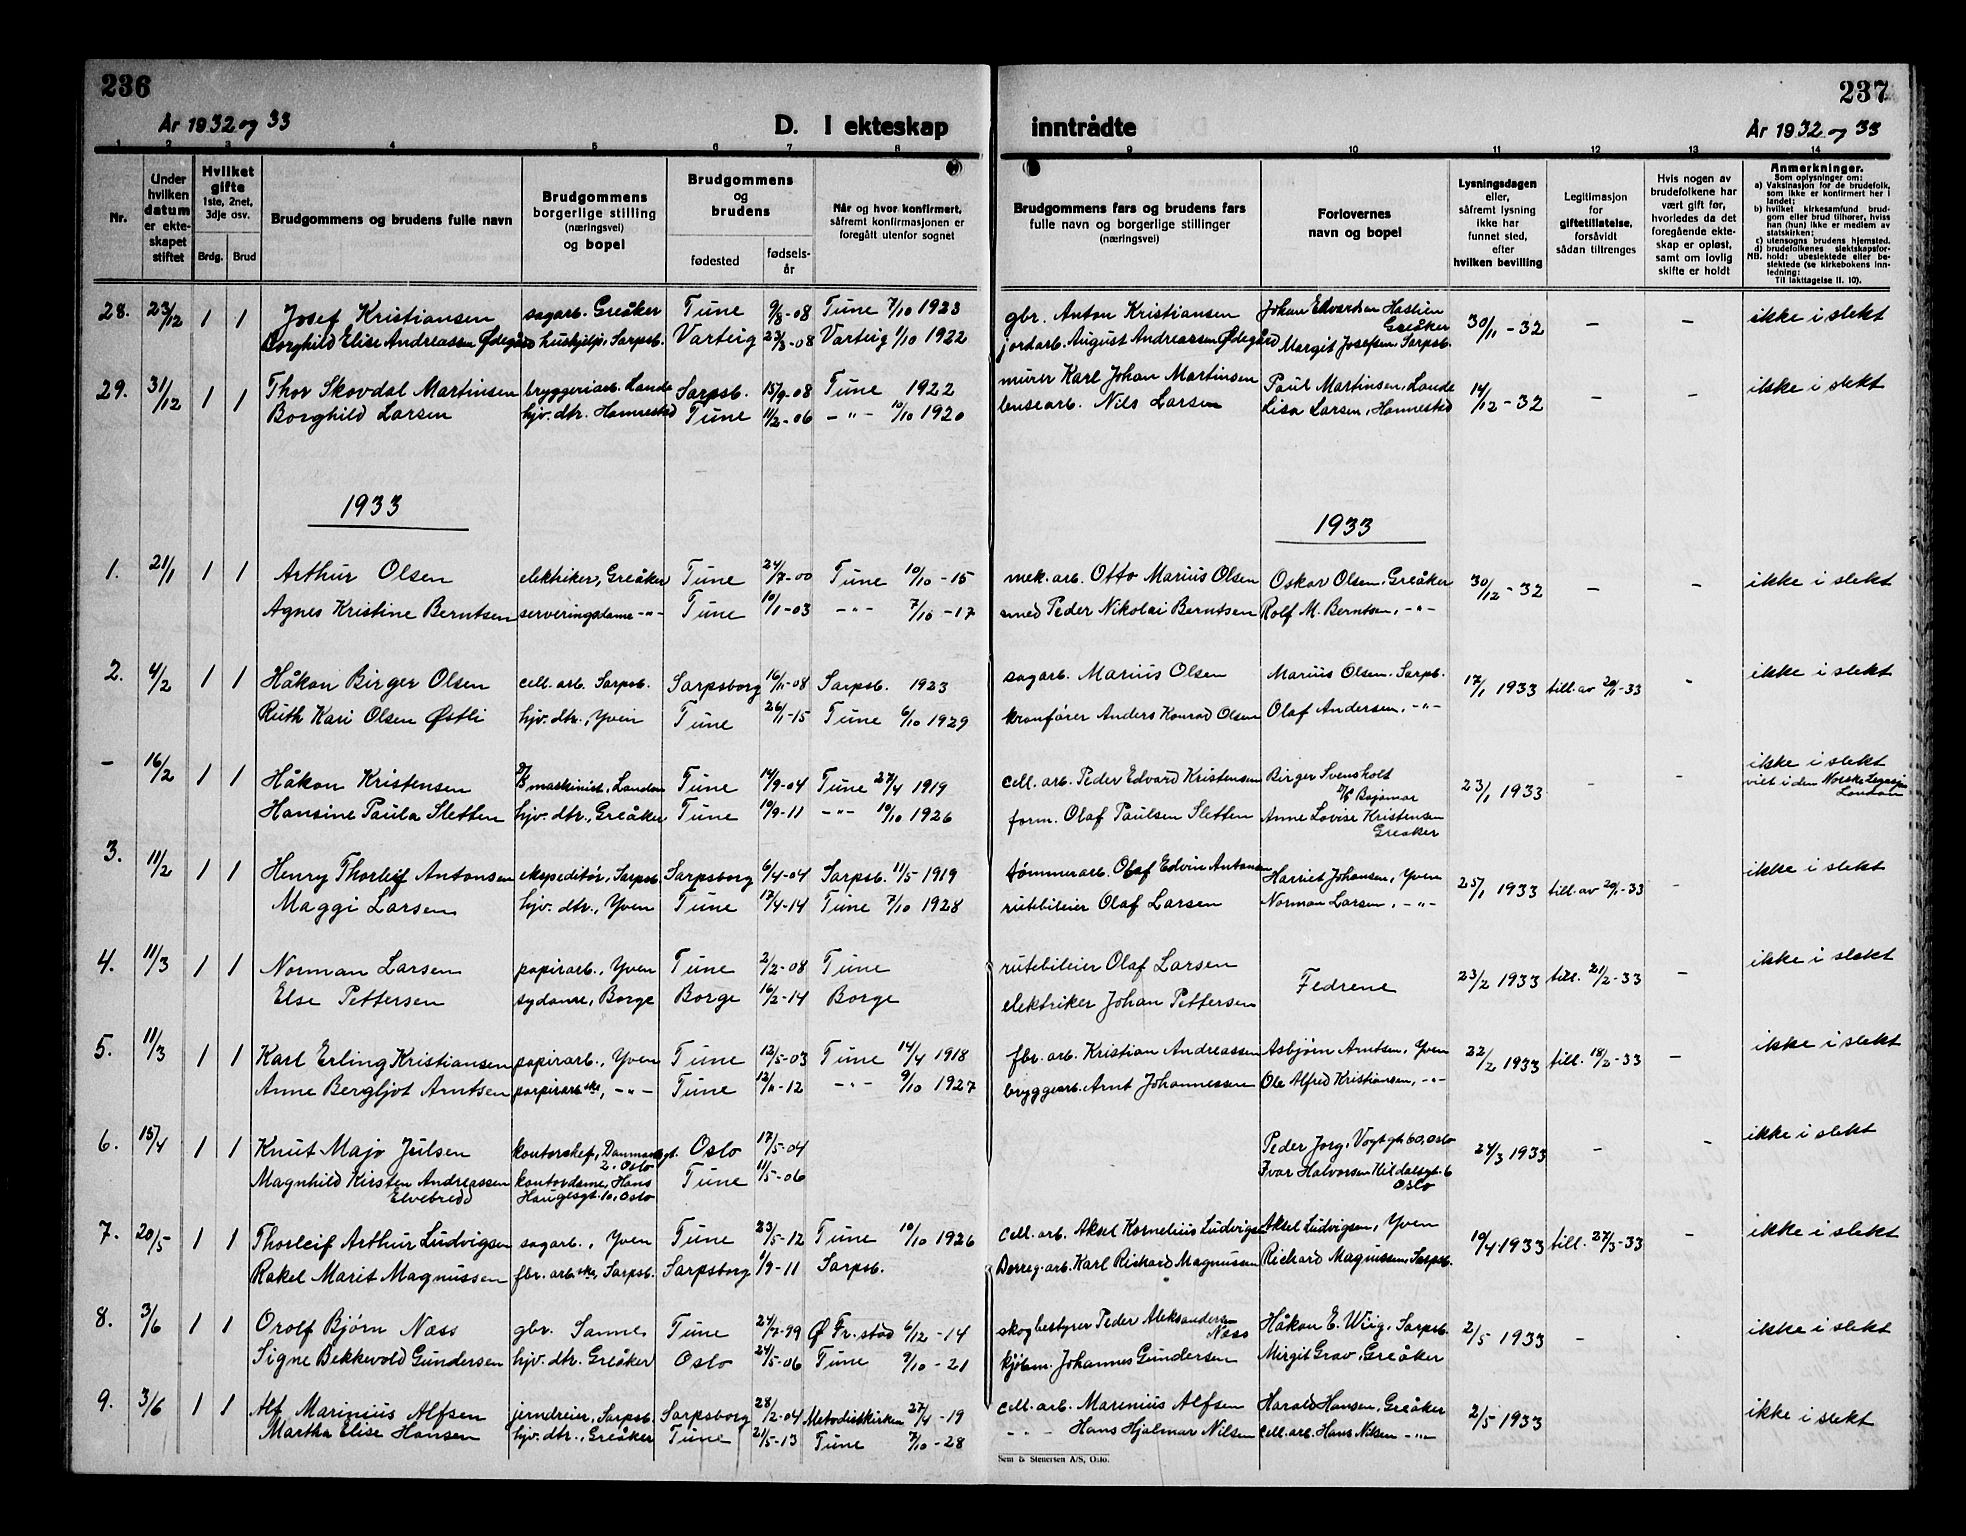 236
År 1932 og 33
D. I ekteskap
inntrådte
237
År 1932 og 33
1 2 3 4 5 6 7 8 9 10 11 12 13 14
Nr.
Under hvilken datum er ekteskapet stiftet
Hvilket gifte 1ste, 2net, 3dje osv.
Brdg. Brud
Brudgommens og brudens fulle navn
Brudgommens borgerlige stilling (næringsvei) og bopel
Brudgommens og brudens
fødested
fødselsår
Når og hvor konfirmert, såfremt konfirmasjonen er foregått utenfor sognet
Brudgommens fars og brudens fars fulle navn og borgerlige stillinger (næringsvei)
Forlovernes navn og bopel
Lysningsdagen eller, såfremt lysning ikke har funnet sted, efter hvilken bevilling
Legitimasjon for giftetillatelse, forsåvidt sådan tiltrenges
Hvis nogen av brudefolkene har vært gift før, hvorledes da det foregående ekteskap er opløst, samt om lovlig skifte er holdt
Anmerkninger.
Som oplysninger om:
a) Vaksinasjon for de brudefolk, som ikke er konfirmert her i landet;
b) hvilket kirkesamfund brudgom eller brud tilhører, hviss han (hun) ikke er medlem av statskirken;
c) utensogns brudens hjemsted.
d) brudefolkenes slektskapsforhold: ubeslektede eller beslektede (se kirkebokens innledning:
NB.
Til iakttagelse II. 10).
28. 23/12 1 1 Josef Kristiansen sagarb. Greåker Tune 9/8-08 Tune 7/10 1923 gbr. Anton Kristiansen Johan Edvardsen Greåker 30/11-32 – – ikke i slekt
Borghild Elise Andreassen Ødegård Sarpsb. Varteig 23/3-08 Varteig 1/10 1922 jordarb. August Andreassen Ødegård Margit Josefsen, Sarpsb.
29. 31/12 1 1 Thor Skovdal Martinsen bryggeriarb. Lande Sarpsb. 15/9-08 Tune 1922 murer Karl Johan Martinsen Paul Martinsen, Lande 14/12-32 – – ikke i slekt
Borghild Larsen hjv. dtr. Hannestad Tune 11/2-06 -"- 10/10 1920 lensearb. Nils Larsen Lisa Larsen, Hannestad
1933
1933
1. 21/1 1 1 Arthur Olsen elektriker, Greåker Tune 24/7-00 Tune 10/10-15 mek. arb. Otto Marius Olsen Oskar Olsen, Greåker 30/12-32 – – ikke i slekt
Agnes Kristine Berntsen serveringsdame -"- Tune 10/1-03 -"- 7/10-17 smed Peder Nikolai Berntsen Rolf M. Berntsen, -"-
2. 4/2 1 1 Håkon Birger Olsen cell. arb. Sarpsb. Sarpsborg 16/11-08 Sarpsb. 1923 sagarb. Marius Olsen Marius Olsen, Sarpsb. 17/1 1933 till. av 20/1-33 - ikke i slekt
Ruth Kari Olsen Østli hjv. dtr., Yven Tune 26/11-15 Tune 6/10 1929 kranfører Anders Konrad Olsen Olaf Andersen, -"-
– 16/2 1 1 Håkon Kristensen maskinist, London Tune 14/9-04 Tune 27/4 1919 cell. arb. Peder Edvard Kristensen Birger Svensholt 23/1 1933 - - ikke i slekt
viet i den Norske Legasjon London
D/S Bajamar
Hansine Paula Sletten hjv. dtr., Greåker Tune 10/9-11 -"- 10/10 1926 form. Olaf Paulsen Sletten Anne Lovise Kristensen Greåker
3. 11/2 1 1 Henry Thorleif Antonsen ekspeditør, Sarpsb. Sarpsborg 6/4-04 Sarpsb. 11/5 1919 tømmerarb. Olaf Edvin Antonsen Harriet Johansen, Yven 25/1 1933 till. av 20/1-33 - ikke i slekt
Maggi Larsen hjv. dtr., Yven Tune 17/4-14 Tune 7/10 1928 rutebileier Olaf Larsen Norman Larsen, -"-
4. 11/3 1 1 Norman Larsen papirarb., Yven Tune 2/2-08 Tune rutebileier Olaf Larsen Fedrene 23/2 1933 till. 21/2-33 – ikke i slekt
Else Pettersen sydame, Borge Borge 16/2-14 Borge elektriker Johan Pettersen
5. 11/3 1 1 Karl Erling Kristiansen papirarb., Yven Tune 12/5-03 Tune 14/4 1918 fbr. arb. Kristian Andreassen Asbjørn Arntsen, Yven 22/2 1933 till. 18/2-33 – ikke i slekt
Anne Bergljot Arntsen papirarbske, -"- Tune 12/11-12 -"- 9/10 1927 bryggearb. Arnt Johannessen Ole Alfred Kristiansen, -"-
6. 15/4 1 1 Knut Majo Julsen kontorchef, Danmarksgt. 2. Oslo Oslo 17/5-04 Peder Jorg, Vogtsgt. 60, Oslo 24/3 1933 - - ikke i slekt
Magnhild Kirsten Andreassen Elvebredd kontordame, Hans Haugesgt. 10, Oslo Tune 11/5-06 Ivar Halvorsen Kildalsgt. 6 Oslo
7. 20/5 1 1 Thorleif Arthur Ludvigsen sagarb., Yven Tune 23/5-12 Tune 10/10 1926 cell. arb. Aksel Kornelius Ludvigsen Aksel Ludvigsen, Yven 19/4 1933 till. 27/3-33 - ikke i slekt
Rakel Marit Magnussen fbr. arbske, Sarpsb. Sarpsborg 1/9-11 Sarpsb. Borreg. arb. Karl Rickard Magnussen Rickard Magnussen, Sarpsb.
8. 3/6 1 1 Orolf Bjørn Næss gbr. Sanne Tune 24/7-99 Ø Fr.stad 6/12-14 skogbestyrer Peder Aleksandersen Næss Håkon E. Wiig, Sarpsb. 2/5 1933 - - ikke i slekt
Signe Bekkevold Gundersen hjv. dtr. Greåker Oslo 24/5-06 Tune 9/10-21 kjøbm. Johannes Gundersen Mirgit Grav, Greåker
9. 3/6 1 1 Alf Marinius Alfsen jerndreier, Sarpsb. Sarpsborg 28/2-04 Metodistkirken 27/4-19 cell. arb. Marinius Alfsen Harald Hansen, Greåker 2/5 1933 ikke i slekt
Martha Elise Hansen hjv. dtr., Greåker Tune 21/5-13 Tune 7/10-28 -"- Hans Hjalmar Nilsen cell. arb. Hans Nilsen -"-
Sem & Stenersen A/S, Oslo.